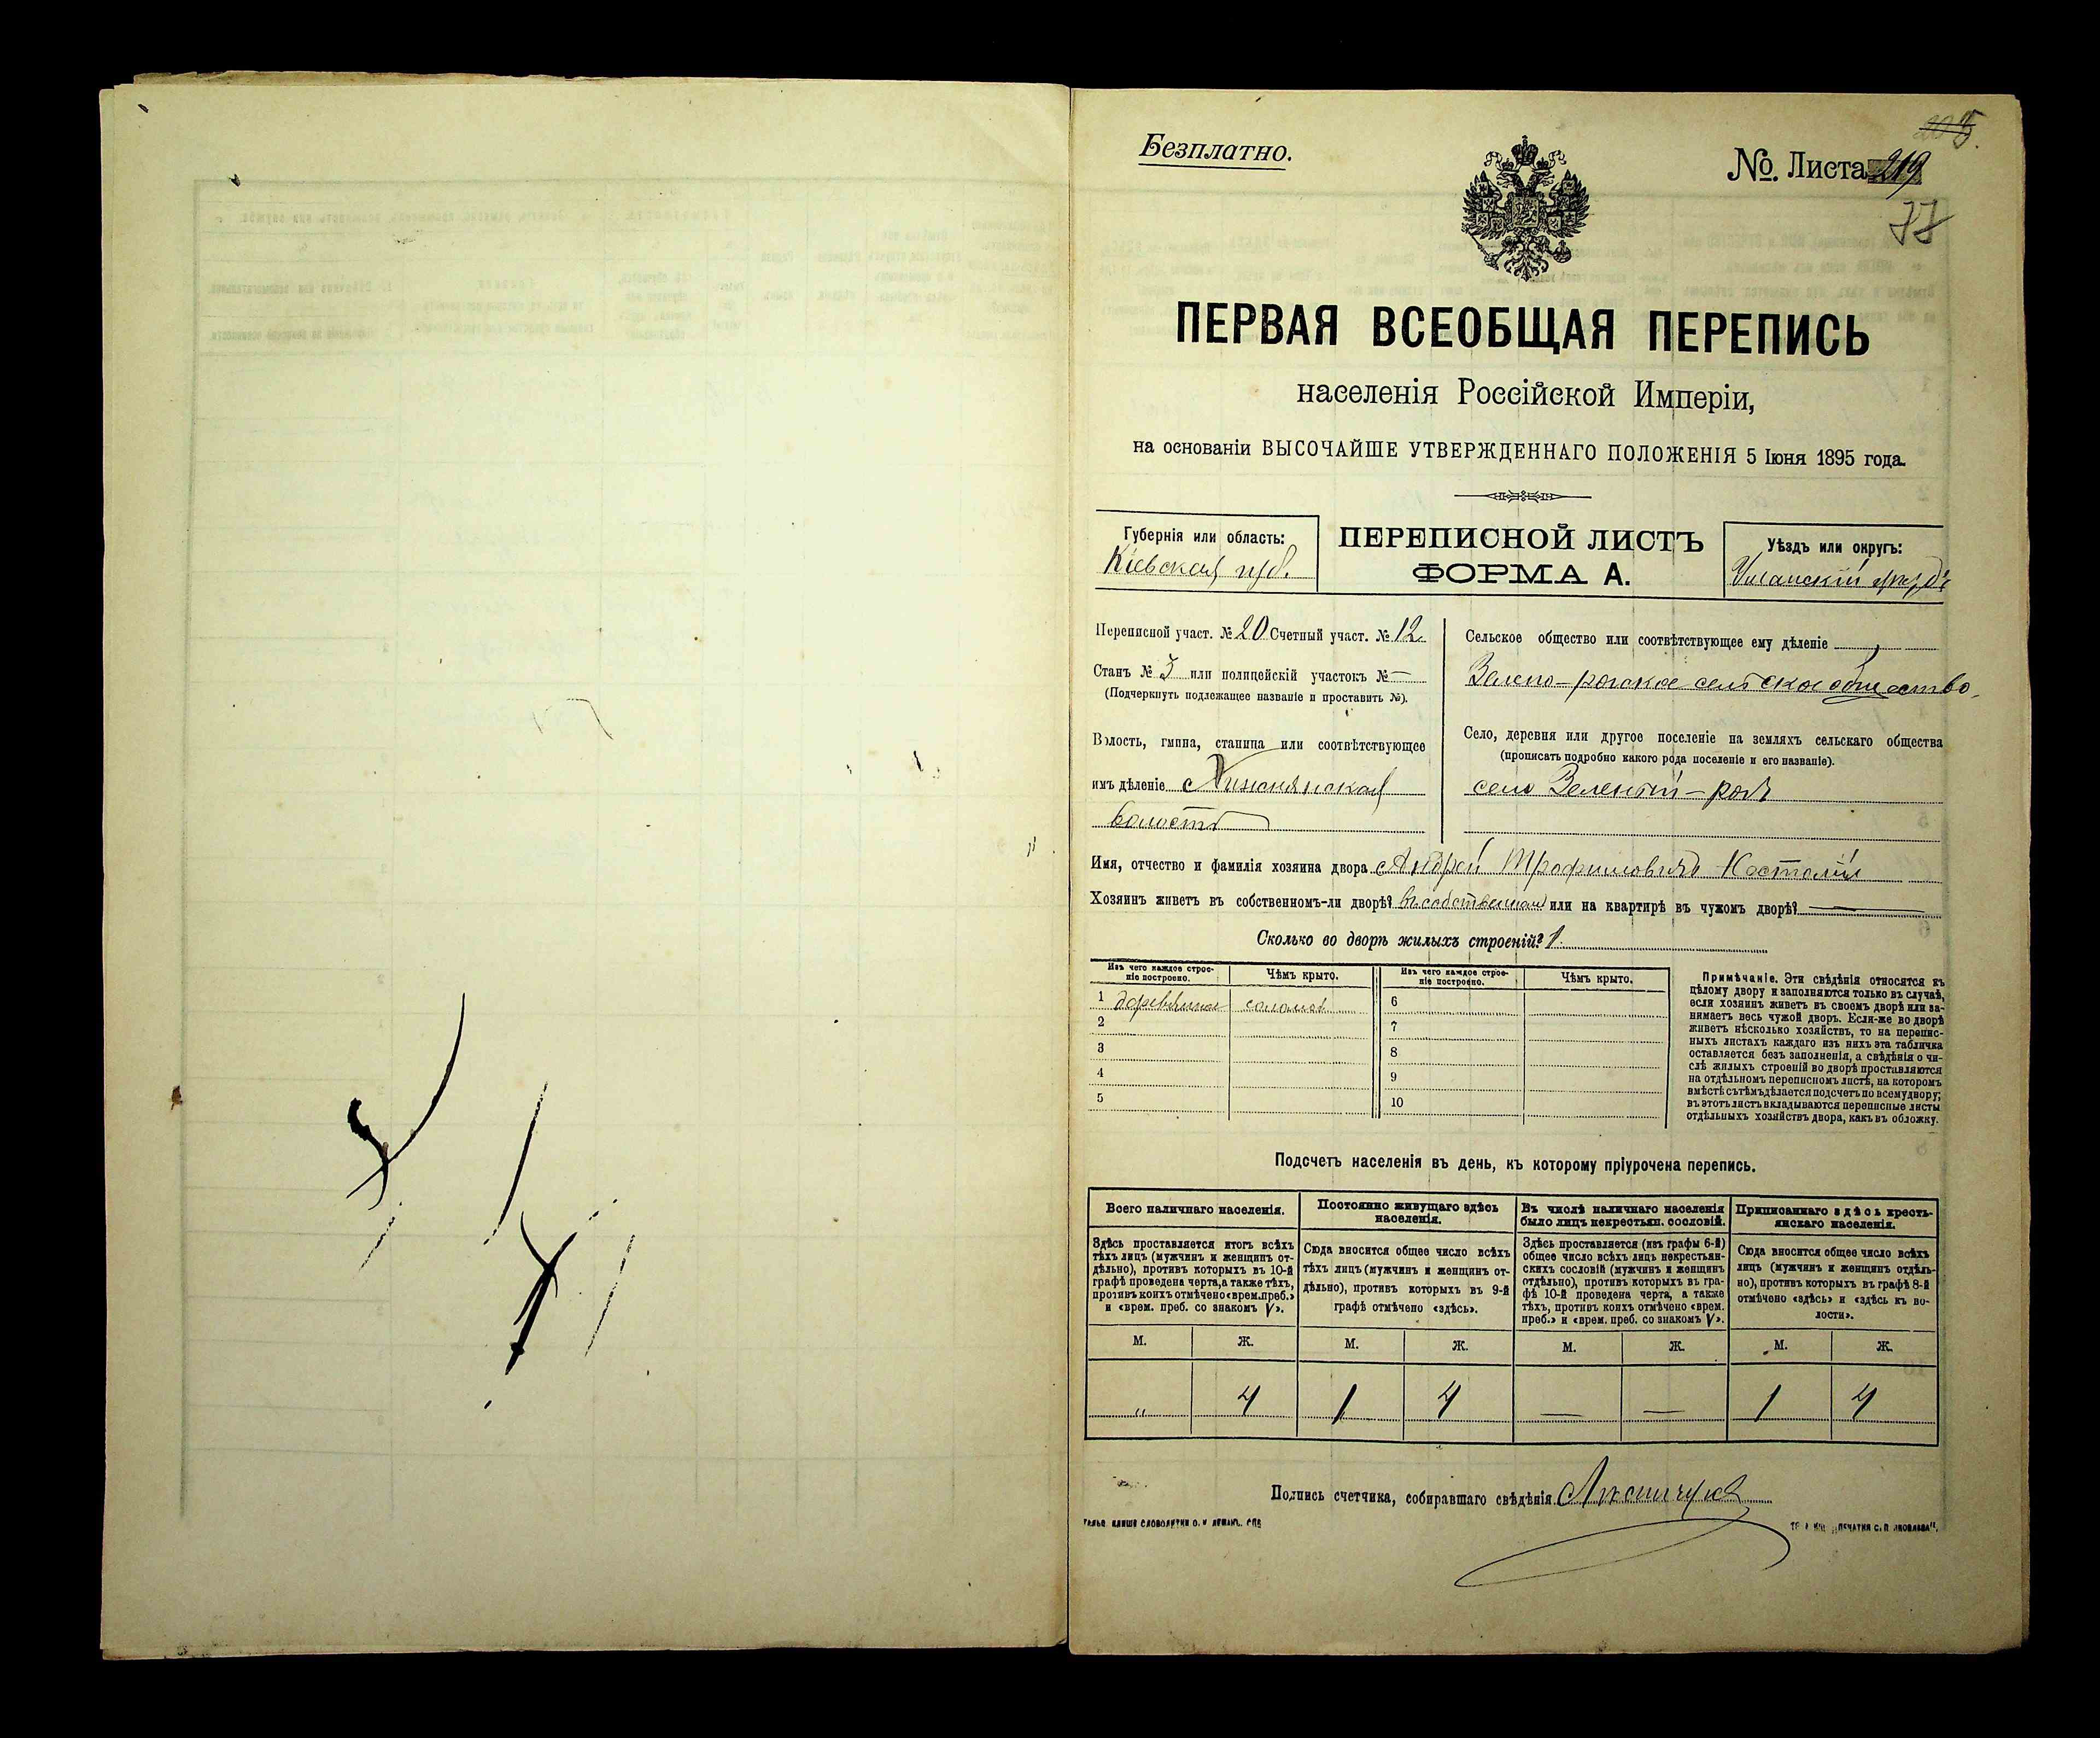 Безплатно.
№. Листа 219
77
ПЕРВАЯ ВСЕОБЩАЯ ПЕРЕПИСЬ
населенія Россійской Имперіи,
на основаніи ВЫСОЧАЙШЕ УТВЕРЖДЕННАГО ПОЛОЖЕНІЯ 5 Іюня 1895 года.
Губернія или область:
Кіевская губ.
ПЕРЕПИСНОЙ ЛИСТЪ
ФОРМА А.
Уѣздъ или округъ:
Уманскій уѣздъ
Переписной участ. № 20 Счетный участ. № 12
Станъ № 3 или полицейскій участокъ № —
(Подчеркнуть подлежащее названіе и проставить №).
Волость, гмина, станица или соотвѣтствующее
имъ дѣленіе
волость
Сельское общество или соотвѣтствующее ему дѣленіе
Зелено-рогское сельское общество
Село, деревня или другое поселеніе на земляхъ сельскаго общества
(прописать подробно какого рода поселеніе и его названіе).
село Зеленый-рогъ
Имя, отчество и фамилія хозяина двора Андрей Трофимовичъ
Хозяинъ живетъ въ собственномъ-ли дворѣ? въ собственном или на квартирѣ въ чужомъ дворѣ? —
Сколько во дворѣ жилыхъ строеній? 1.
Изъ чего каждое строе-
ніе построено.
Чѣмъ крыто.
Изъ чего каждое строе-
ніе построено.
Чѣмъ крыто.
1 деревянное соломой 6
2 7
3 8
4 9
5 10
Примѣчаніе. Эти свѣдѣнія относятся къ
цѣлому двору и заполняются только въ случаѣ,
если хозяинъ живетъ въ своемъ дворѣ или за-
нимаетъ весь чужой дворъ. Если-же во дворѣ
живетъ нѣсколько хозяйствъ, то на перепис-
ныхъ листахъ каждаго изъ нихъ эта табличка
оставляется безъ заполненія, а свѣдѣнія о чи-
слѣ жилыхъ строеній во дворѣ проставляются
на отдѣльномъ переписномъ листѣ, на которомъ
вмѣстѣ съ тѣмъ дѣлается подсчетъ по всему двору;
въ этотъ листъ вкладываются переписные листы
отдѣльныхъ хозяйствъ двора, какъ въ обложку.
Подсчетъ населенія въ день, къ которому пріурочена перепись.
Всего наличнаго населенія.
Здѣсь проставляется итогъ всѣхъ
тѣхъ лицъ (мужчинъ и женщинъ от-
дѣльно), противъ которыхъ въ 10-й
графѣ проведена черта, а также тѣхъ,
противъ коихъ отмѣчено «врем. преб.»
и «врем. преб. со знакомъ V».
Постоянно живущаго здѣсь
населенія.
Сюда вносится общее число всѣхъ
тѣхъ лицъ (мужчинъ и женщинъ от-
дѣльно), противъ которыхъ въ 9-й
графѣ отмѣчено «здѣсь».
Въ числѣ наличнаго населенія
было лицъ некрестьян. сословій.
Здѣсь проставляется (изъ графы 6-й)
общее число всѣхъ лицъ некрестьян-
скихъ сословій (мужчинъ и женщинъ
отдѣльно), противъ которыхъ въ гра-
фѣ 10-й проведена черта, а также
тѣхъ, противъ коихъ отмѣчено «врем.
преб.» и «врем. преб. со знакомъ V».
Приписаннаго здѣсь кресть-
янскаго населенія.
Сюда вносится общее число всѣхъ
лицъ (мужчинъ и женщинъ отдѣль-
но), противъ которыхъ въ графѣ 8-й
отмѣчено «здѣсь» и «здѣсь къ во-
лости».
М. Ж. М. Ж. М. Ж. М. Ж.
„ 4 1 4 — — 1 4
Подпись счетчика, собиравшаго свѣдѣнія